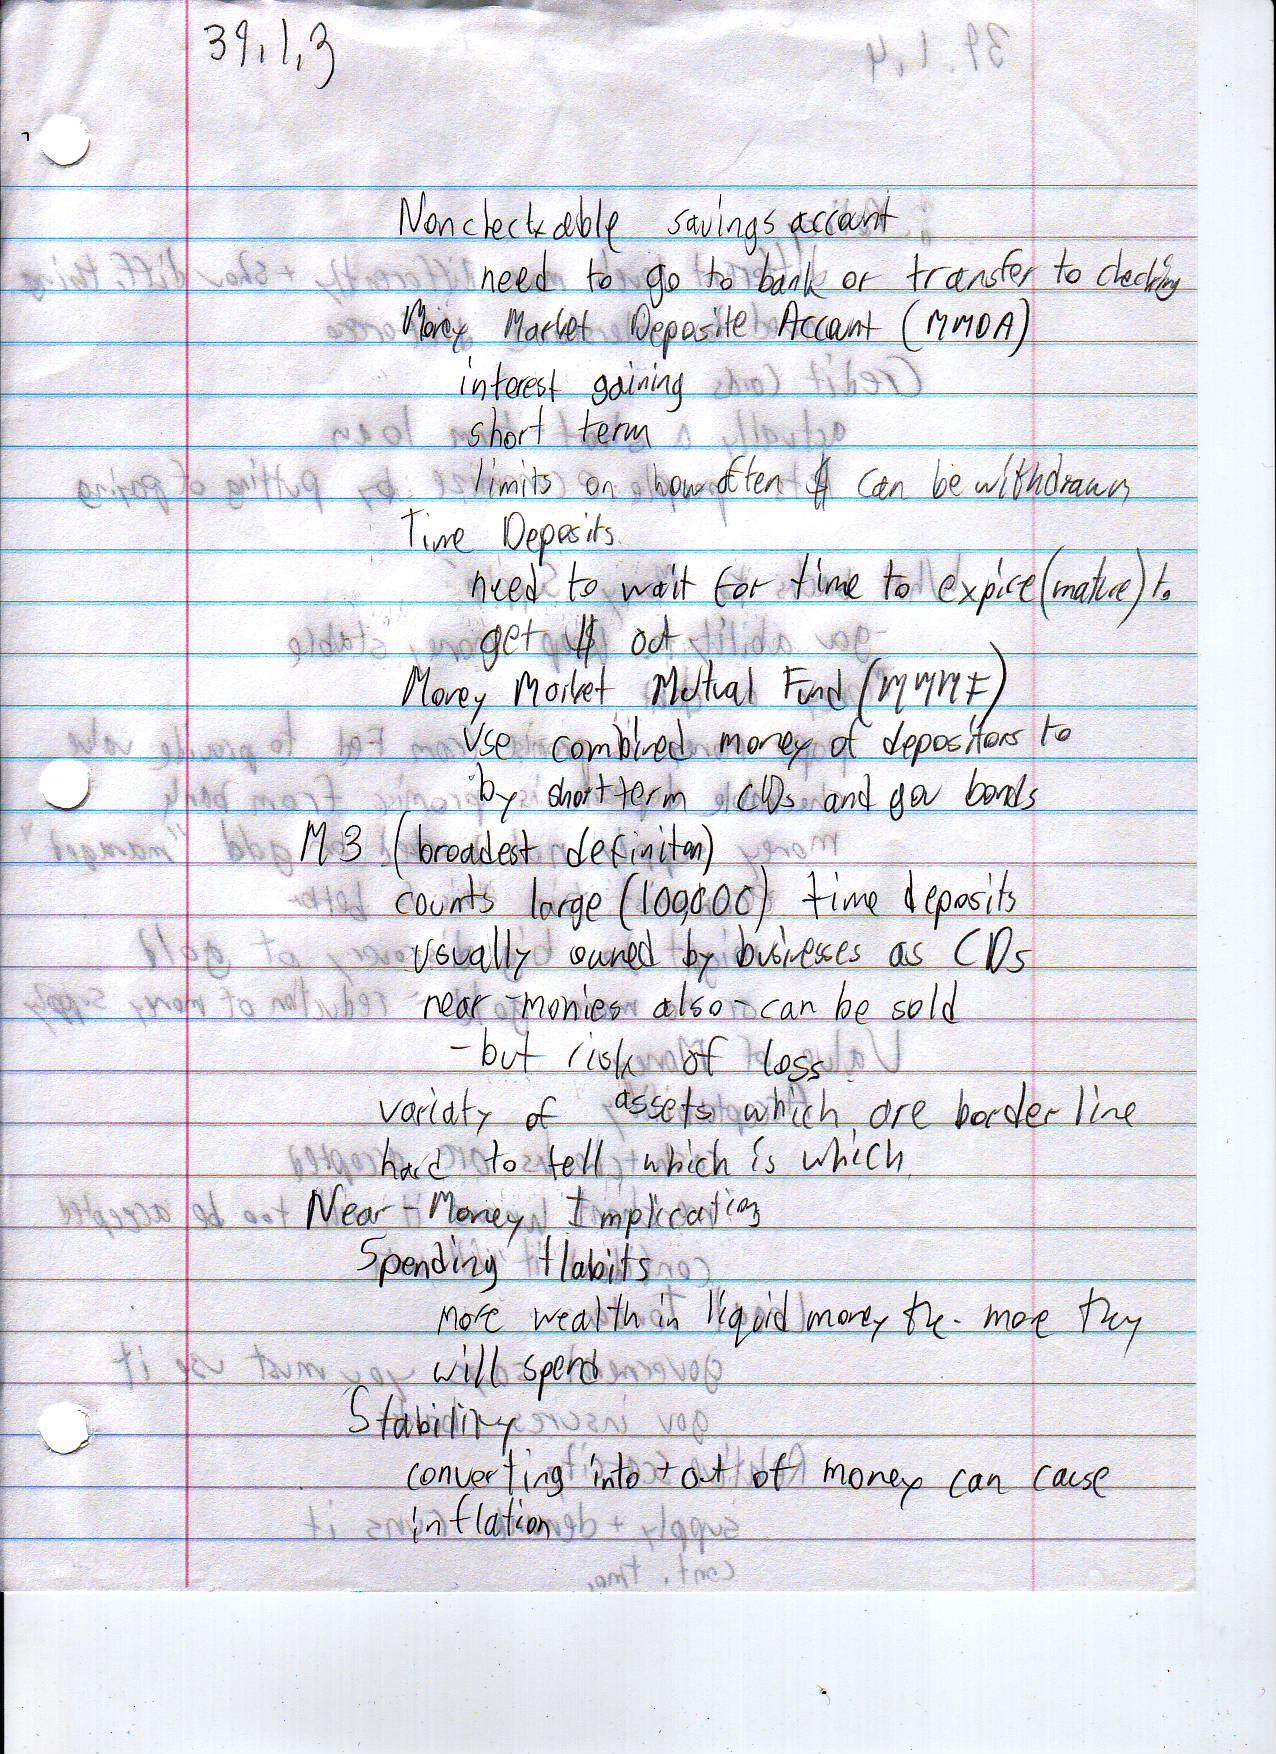 39.1.3
Noncheckable savings account
need to go to bank or transfer to checking
Money Market Deposite Account (MMDA)
interest gaining
short term
limits on how often $ can be withdrawn
Time Deposits
need to wait for time to expire (mature) to
get $ out
Money Market Mutual Fund (MMMF)
use combined money of depositors to
by short term CDs and gov bonds
M3 (broadest definiton)
counts large (100,000) time deposits
usually owned by businesses as CDs
near-monies also - can be sold
- but risk of loss
variaty of assets which are border line
hard to tell which is which
Near-Money Implications
Spending Habits
more wealth in liquid money the more they
will spend
Stability
converting into + out of money can cause
inflation